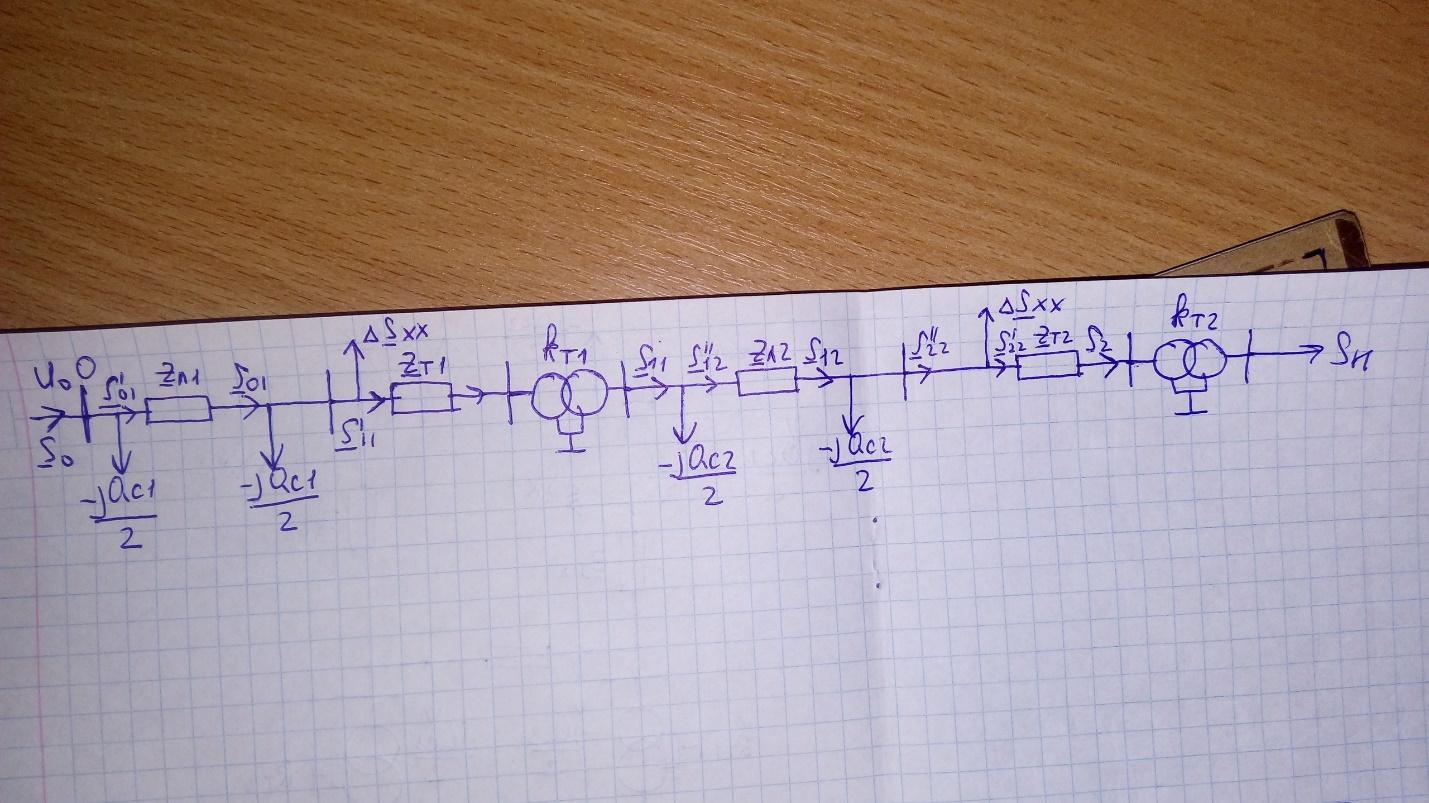 U₀ 0
S₀
S'₀₁
Zл1
S₀₁
-jQc1
2
-jQc1
2
ΔSxx
S'₁₁
Zт1
kт1
S₁₁
S''₁₂
Zл2
S₁₂
-jQc2
2
-jQc2
2
S''₂₂
ΔSxx
S'₂₂
Zт2
S₂
kт2
Sн